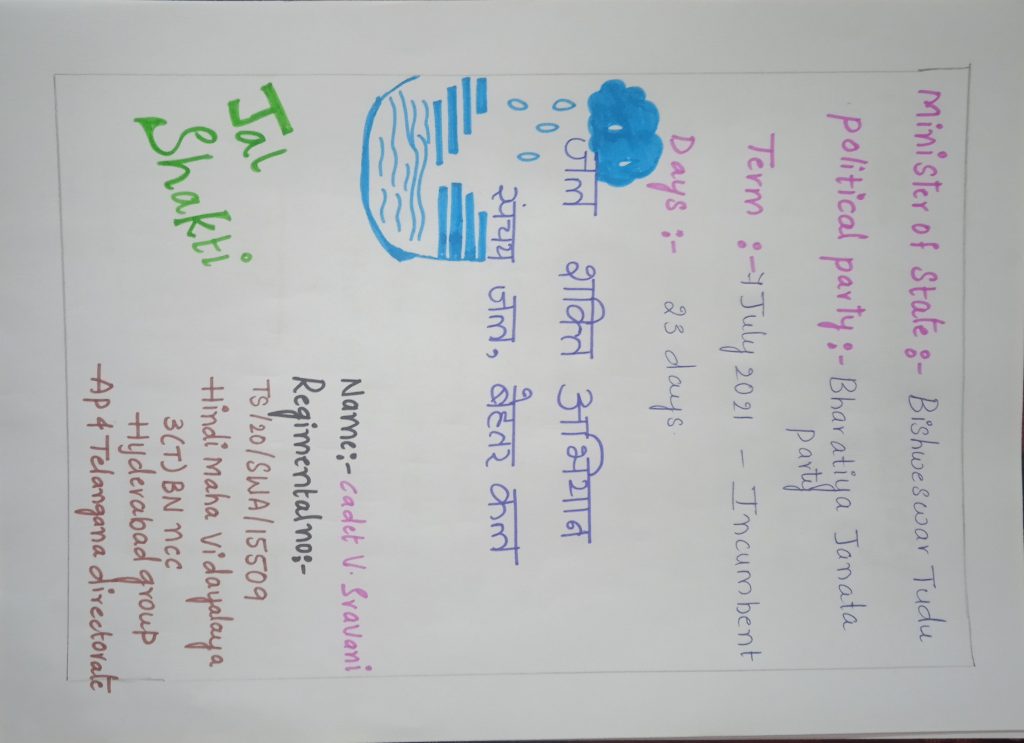 Minister of State :- Bishweswar Tudu
political party :- Bharatiya Janata
Party
Term :- 7 July 2021 - Incumbent
Days :- 23 days.
जल शक्ति अभियान
संचय जल, बेहतर कल
Name:- cadet V. Sravani
Regimental no:-
TS/20/SWA/15509
Hindi Maha Vidayalaya
3(T) BN NCC
Hyderabad group
Ap & Telangana directorate
Jal
Shakti